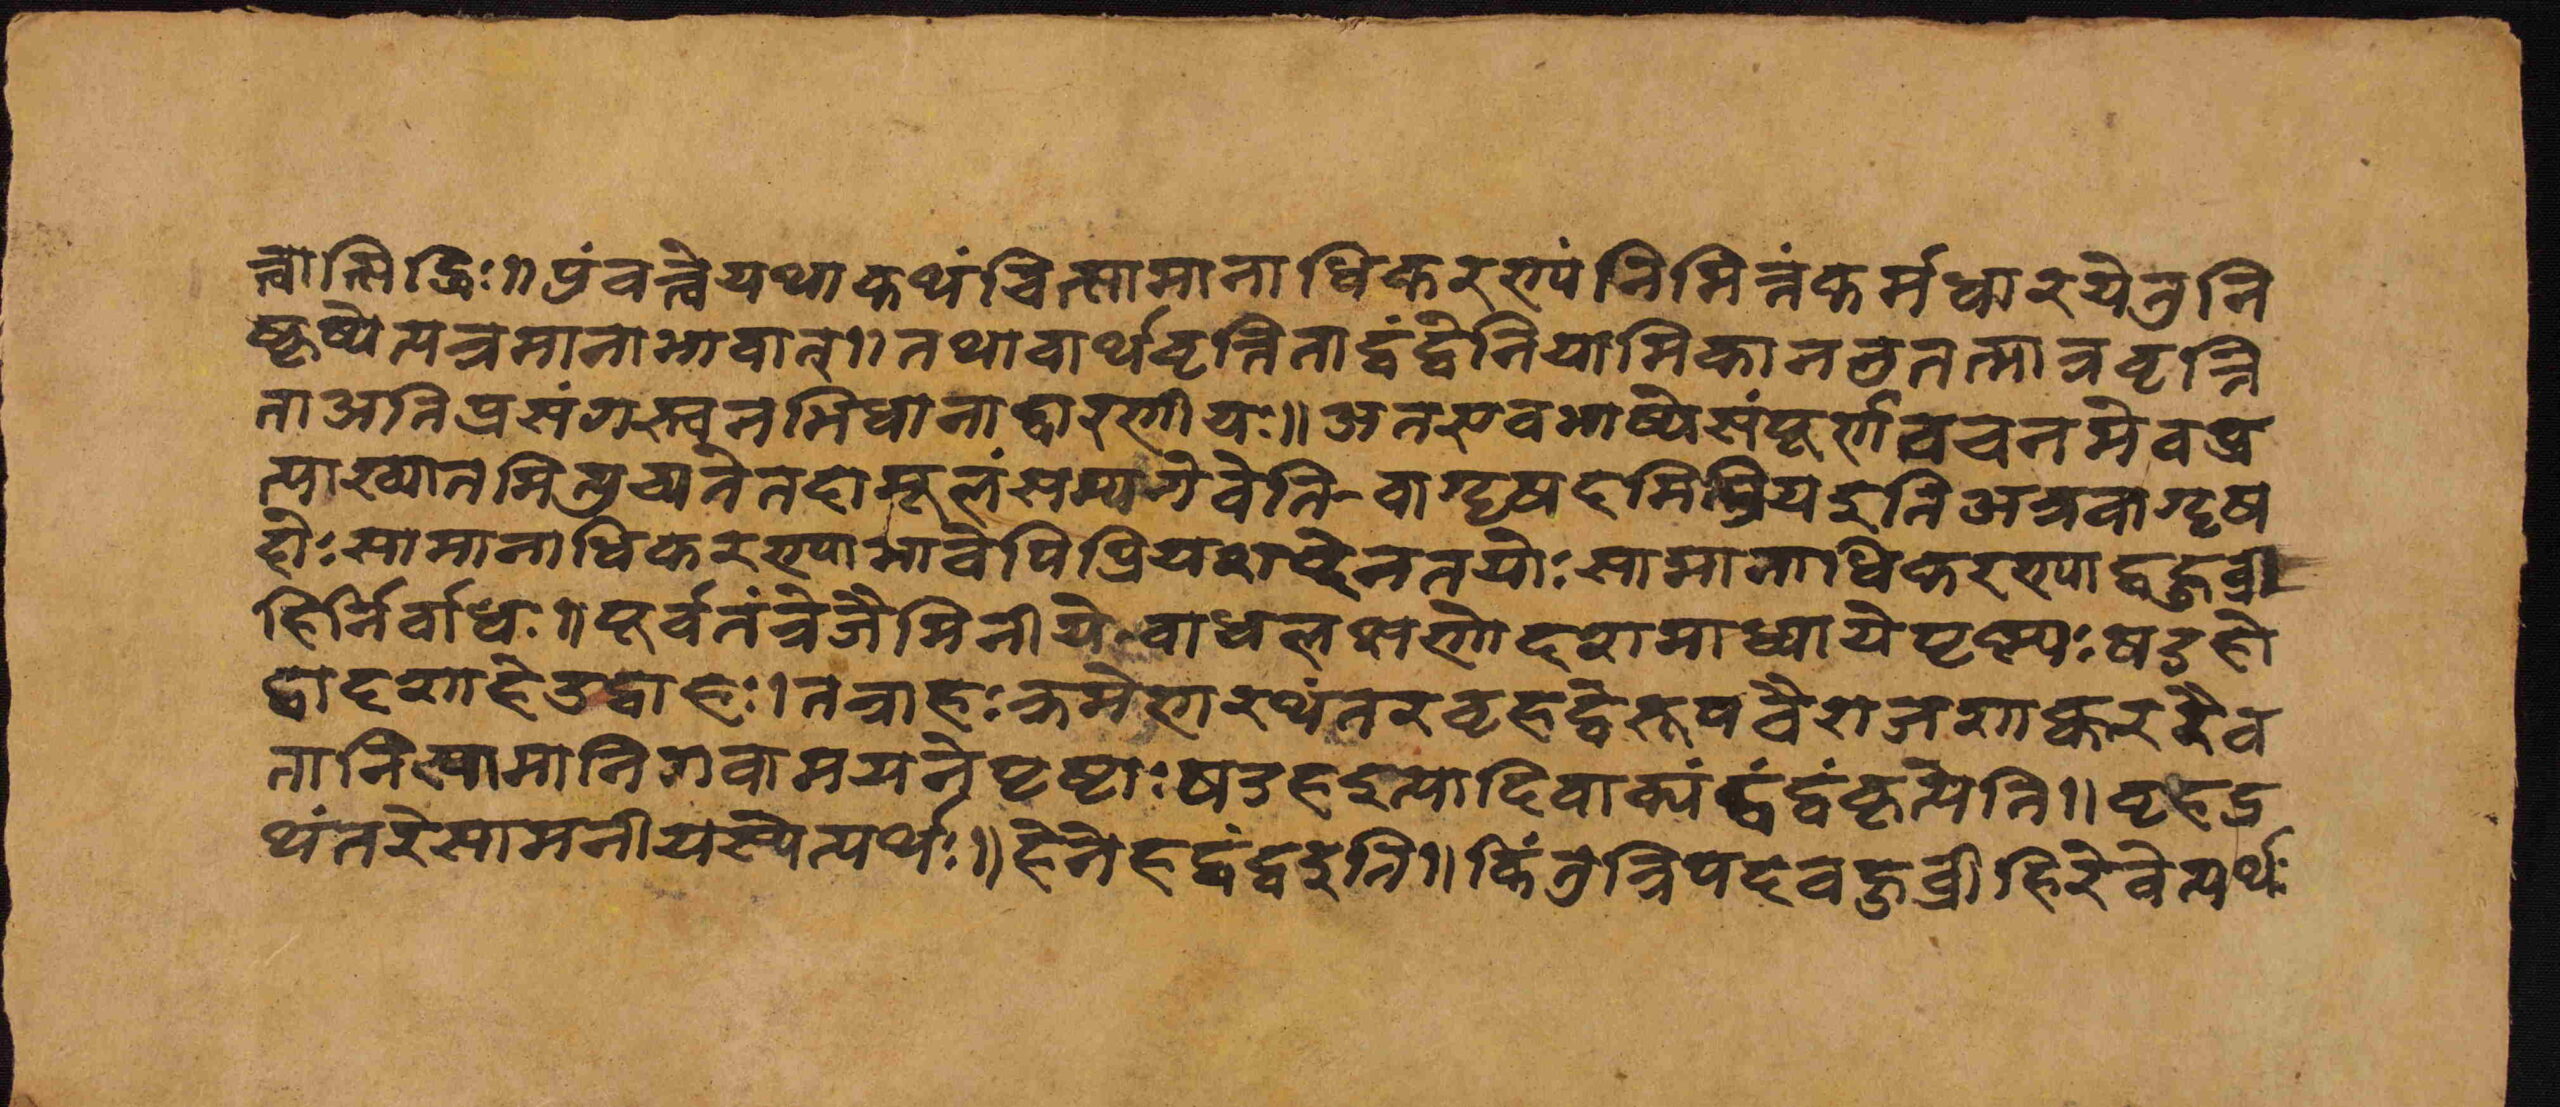 त्वात्सिद्धिः॥ पुंवत्त्वे यथाकथंचित्सामानाधिकरण्यं निमित्तं कर्मधारये तु नि
ष्कृष्येत्यत्रमानाभावात्॥ तथावार्थवृत्तिताद्वंद्वेनियामिकानतुतन्मात्रवृत्ति
ता अतिप्रसंगस्त्वनभिधानाद्वारणीयः॥ अतएवभाष्येसंपूर्णवचनमेवप्र
त्याख्यातमित्युच्यतेतदामूलंसम्यगेवेति-वाग्दृषदमिप्रियइतिअत्रवाग्दृष
दोः सामानाधिकरण्याभावेपिप्रियशब्देनतयोः सामानाधिकरण्याद्बहुव्री
हिर्निर्वाधः॥ पूर्वतंत्रेजैमिनीये-वाधलक्षणेदशमाध्यायेपृष्म्यः षडहो
द्वादशाहेउद्वाहः। तत्राहः क्रमेणरथंतरवृहद्वैरूपवैराजशाक्वररैव
तानिसामानिगवामयनेपृष्टाः षडहइत्यादिवाक्यंद्वंद्वंकृत्येति॥ वृहद्र
थंतरेसामनीयस्येत्यर्थः॥ हेनेहद्वंद्वइति॥ किंतुत्रिपदवहुव्रीहिरेवेत्यर्थः